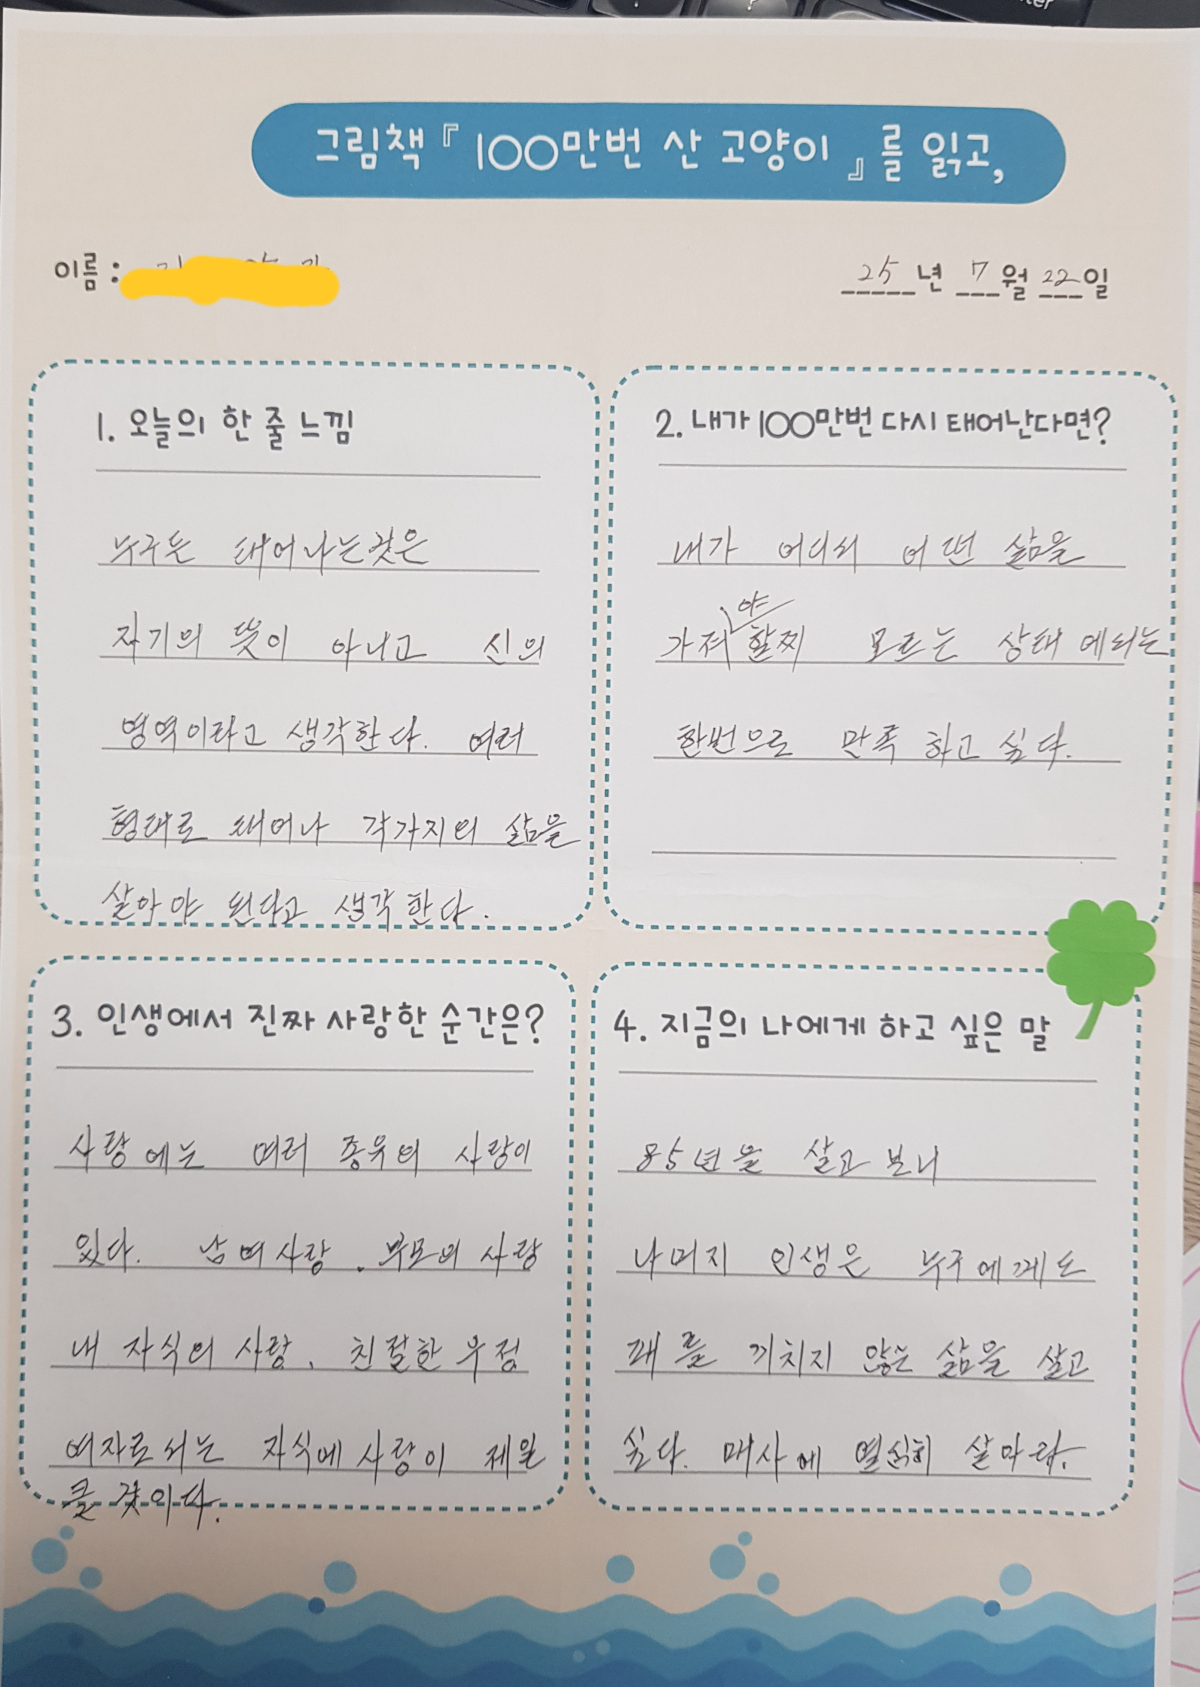 그림책 『 100만번 산 고양이 』를 읽고,
이름 :
25년 7월 22일
1. 오늘의 한 줄 느낌
누구든 태어나는것은
자기의 뜻이 아니고 신의
영역이라고 생각한다. 여러
형태로 태어나 각가지의 삶을
살아야 된다고 생각한다.
2. 내가 100만번 다시 태어난다면?
내가 어디서 어떤 삶을
가져야 할찌 모르는 상태에서는
한번으로 만족하고 싶다.
3. 인생에서 진짜 사랑한 순간은?
사랑에는 여러 종유의 사랑이
있다. 남여사랑. 부모의 사랑
내 자식의 사랑. 친절한 우정
여자로서는 자식에 사랑이 제일
클 것이다.
4. 지금의 나에게 하고 싶은 말
85년을 살고보니
나머지 인생은 누구에게도
패를 끼치지 않는 삶을 살고
싶다. 매사에 열심히 살아라.